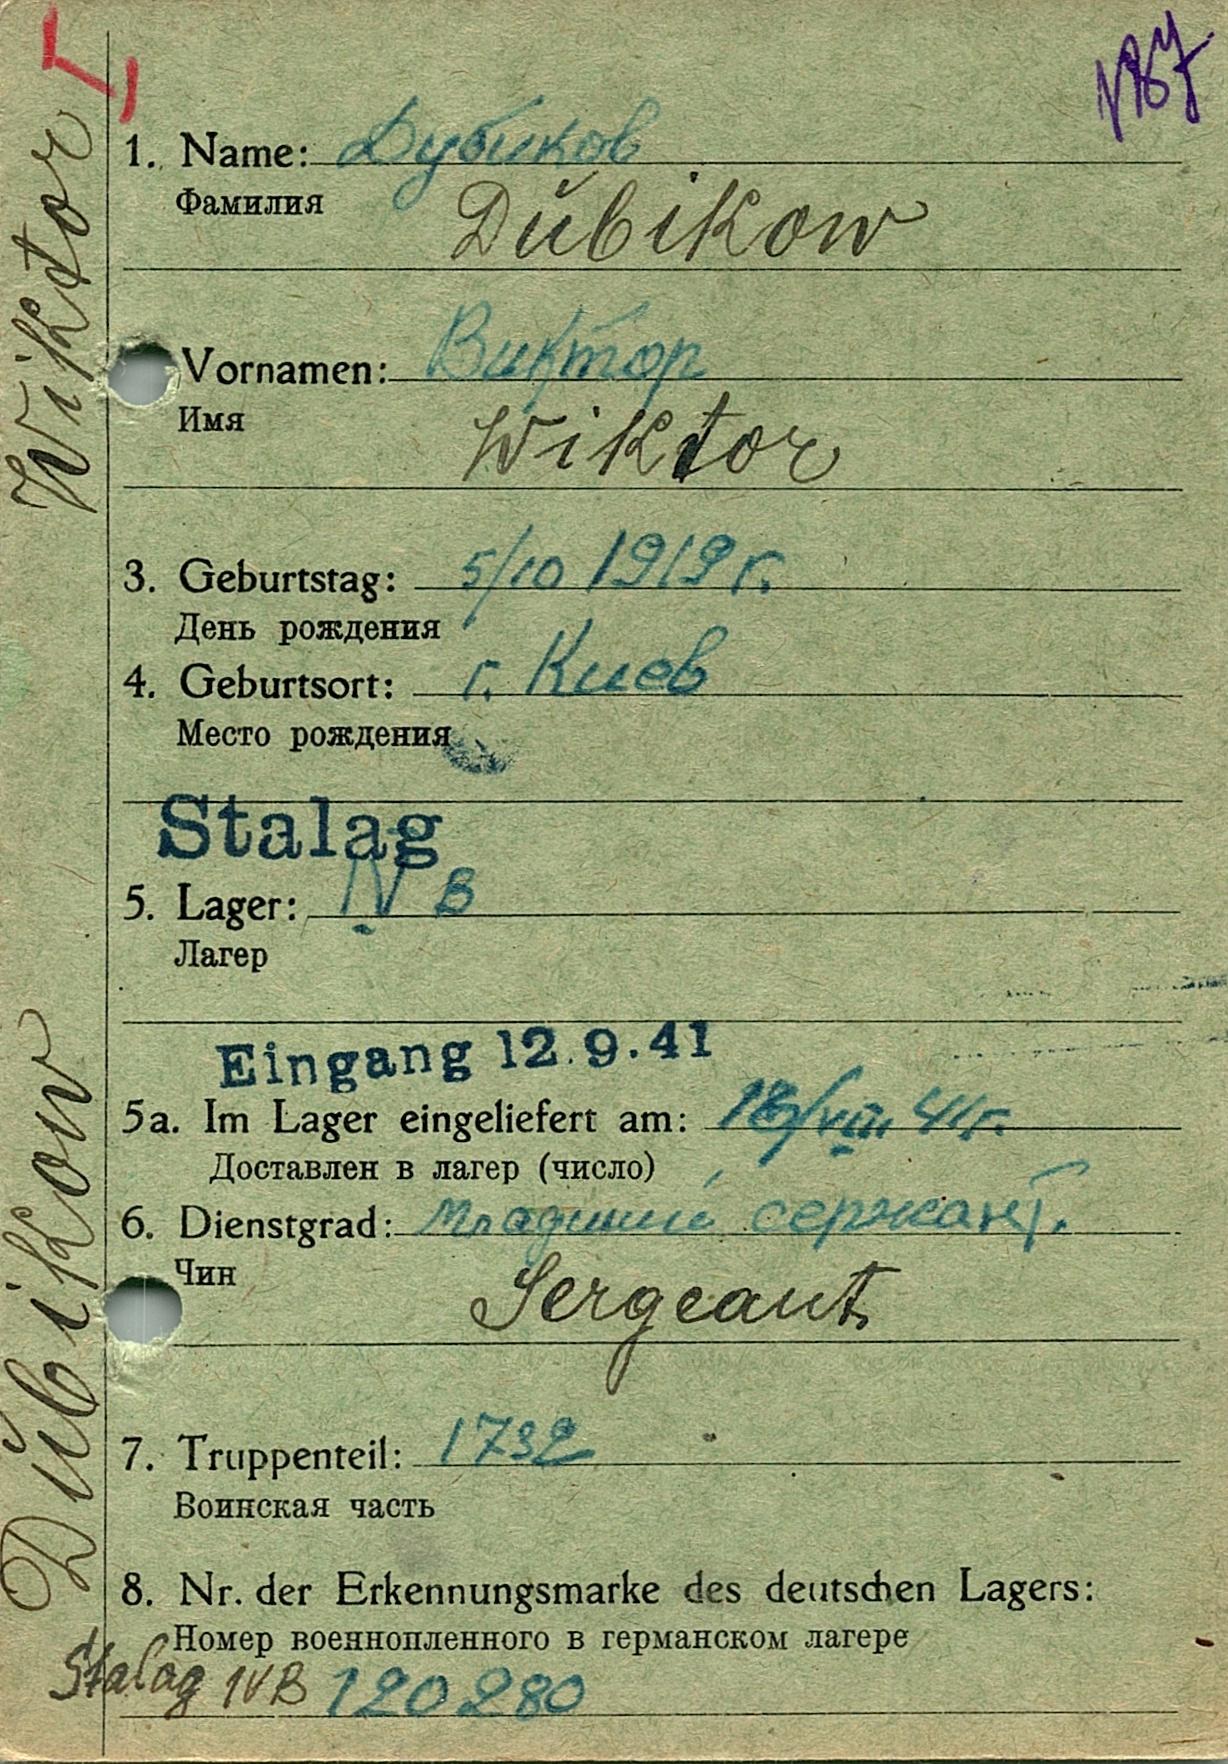 1. Name: Дубиков
Фамилия
Dŭbikow
Vornamen: Виктор
Имя
Wiktor
3. Geburtstag: 5/10 1919 г.
День рождения
4. Geburtsort: г. Киев
Место рождения
Stalag
5. Lager: IV B
Лагер
Eingang 12.9.41
5a. Im Lager eingeliefert am: 18/VIII 41 г.
Доставлен в лагер (число)
6. Dienstgrad: младший сержант.
Чин
Sergeant
7. Truppenteil: 1732
Воинская часть
8. Nr. der Erkennungsmarke des deutschen Lagers:
Номер военнопленного в германском лагере
Stalag IVB 120280
Dŭbikow Wiktor